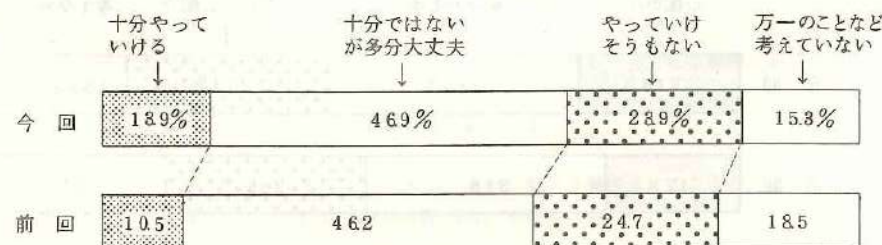 十分やって
いける
十分ではない
が多分大丈夫
やっていけ
そうもない
万一のことなど
考えていない
今回 13.9% 46.9% 23.9% 15.3%
前回 10.5 46.2 24.7 18.5